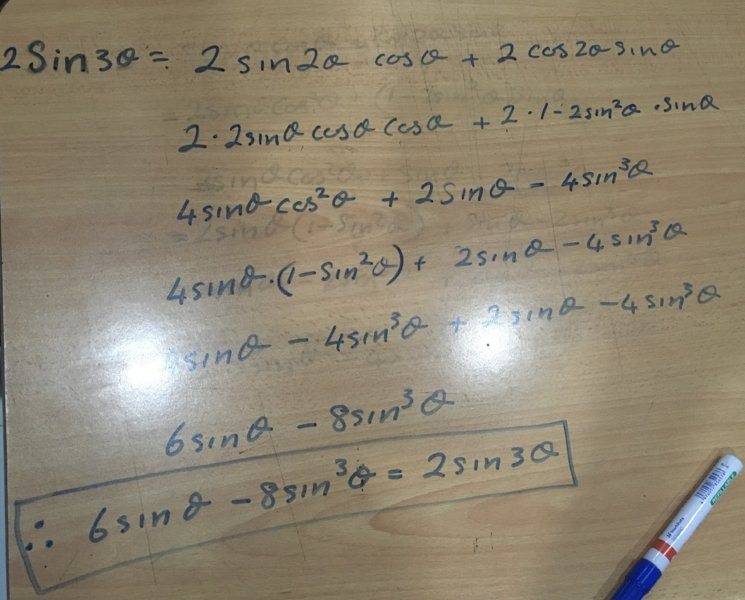 2Sin3θ = 2sin2θ cosθ + 2cos2θsinθ
2·2sinθcosθcosθ + 2·1-2sin²θ·sinθ
4sinθcos²θ + 2sinθ - 4sin³θ
4sinθ·(1-Sin²θ) + 2sinθ - 4sin³θ
4sinθ - 4sin³θ + 2sinθ - 4sin³θ
6sinθ - 8sin³θ
∴ 6sinθ - 8sin³θ = 2sin3θ